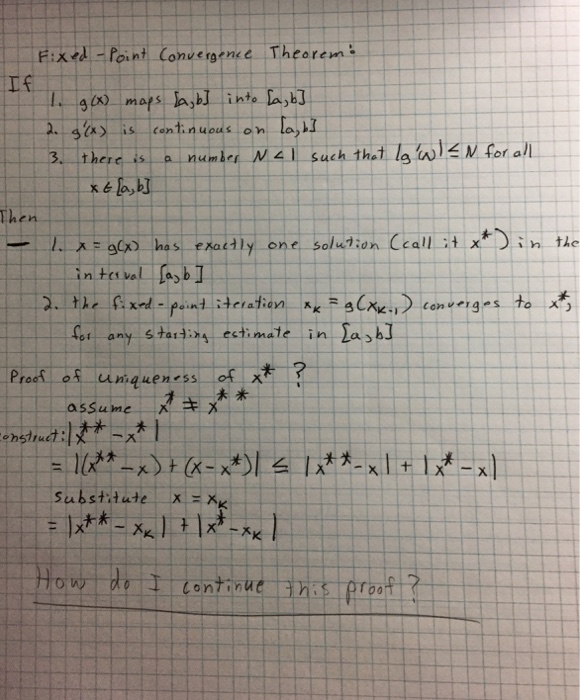 Fixed-Point Convergence Theorem:
If
1. g(x) maps [a,b] into [a,b]
2. g'(x) is continuous on [a,b]
3. there is a number N<1 such that |g'(x)| ≤ N for all
x ∈ [a,b]
Then
1. x = g(x) has exactly one solution (call it x*) in the
interval [a,b]
2. the fixed-point iteration xₖ = g(xₖ₋₁) converges to x*,
for any starting estimate in [a,b]
Proof of uniqueness of x* ?
assume x* ≠ x**
onstruct: |x** - x*|
= |(x** - x) + (x - x*)| ≤ |x** - x| + |x* - x|
Substitute x = xₖ
= |x** - xₖ| + |x* - xₖ|
How do I continue this proof?